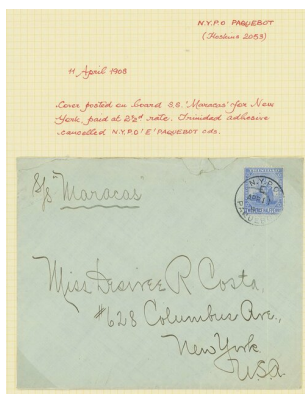 N.Y.P.O PAQUEBOT
(Hoskins 2053)
11 April 1908
Cover posted on board S.S. 'Maracas' for New
York, paid at 2½d rate. Trinidad adhesive
cancelled N.Y.P.O 'E' PAQUEBOT cds.
S/S "Maracas"
N.Y.P.O.
E
APR 11
Miss Desiree R Costa,
#628 Columbus Ave.,
New York
U.S.A.